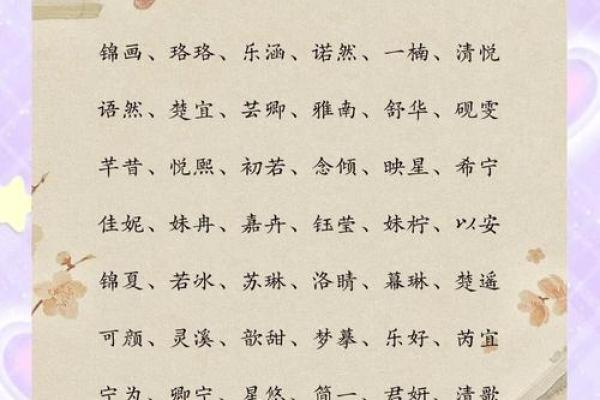 锦画、珞珞、乐涵、诺然、一楠、清悦
语然、楚宜、芸卿、雅南、舒华、砚雯
芊昔、悦熙、初若、念倾、映星、希宁
佳妮、妹冉、嘉卉、钰莹、妹柠、以安
锦夏、若冰、苏琳、洛晴、幕琳、楚遥
可颜、灵溪、歆甜、梦摹、乐好、芮宜
宁为、卿宁、星悠、简一、君妍、清歌